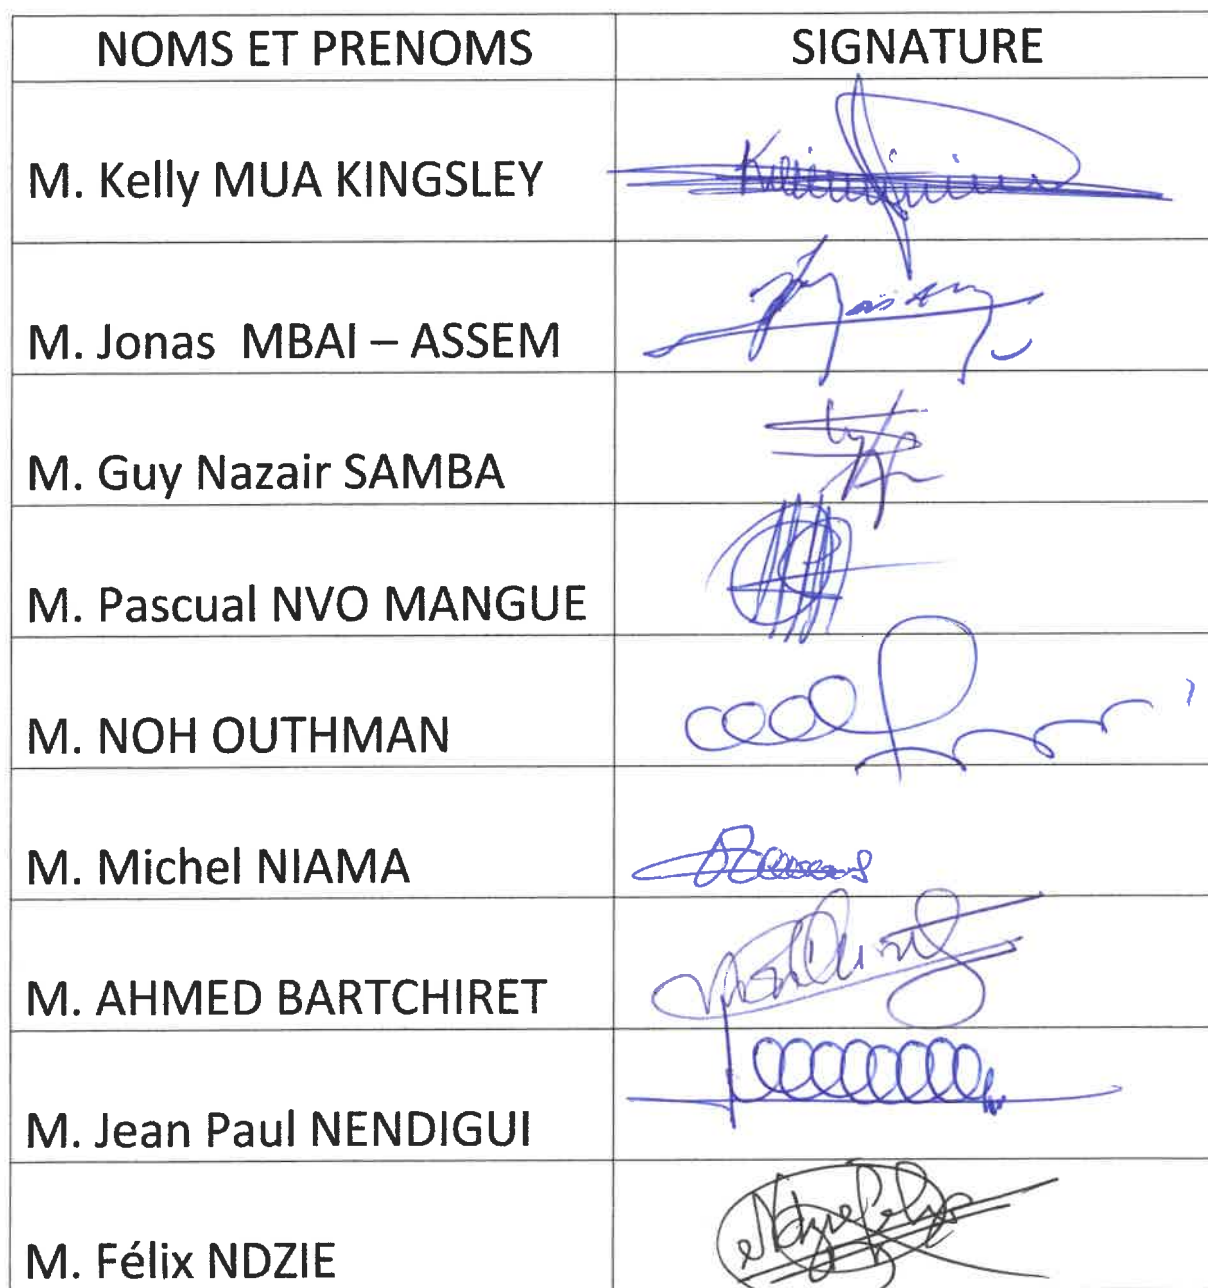 NOMS ET PRENOMS SIGNATURE
M. Kelly MUA KINGSLEY
M. Jonas MBAI – ASSEM
M. Guy Nazair SAMBA
M. Pascual NVO MANGUE
M. NOH OUTHMAN
M. Michel NIAMA
M. AHMED BARTCHIRET
M. Jean Paul NENDIGUI
M. Félix NDZIE